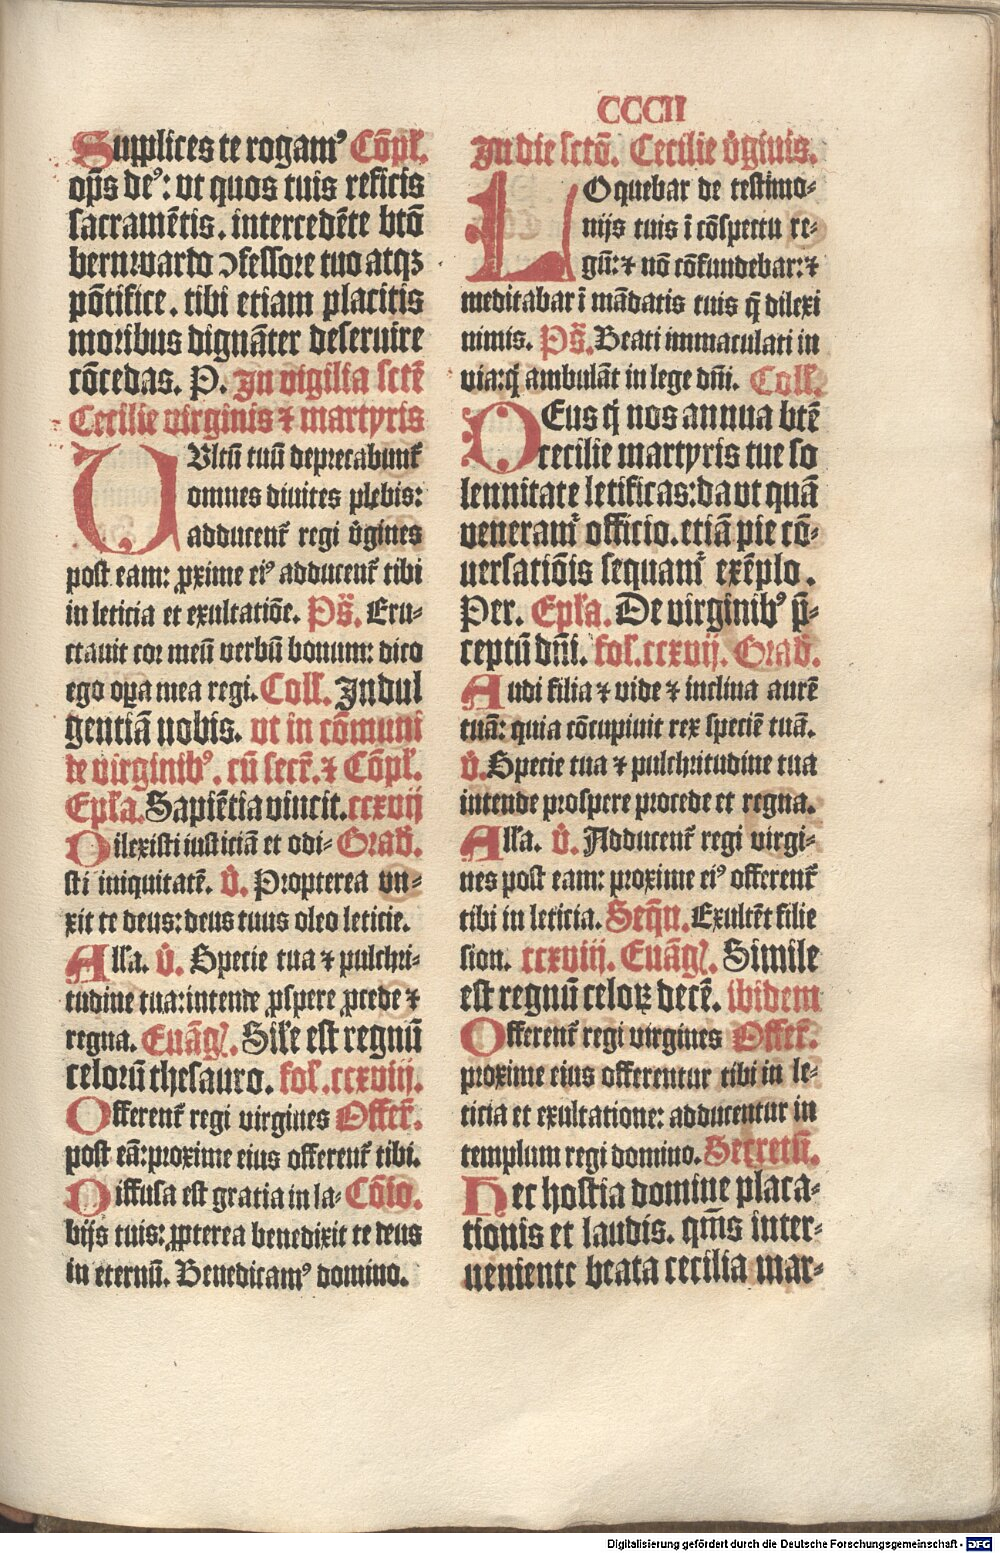 CCCII
Supplices te rogamꝰ Cõpł.
op̃s deꝰ: vt quos tuis reficis
sacramētis. intercedēte btõ
bernwardo ↄfessore tuo atqꝫ
põtifice. tibi etiam placitis
moribus dignãter deseruire
cõcedas. P. In vigilia sctē
Cecilie virginis ⁊ martyris
VUltũ tuũ deprecabunt᷑
omnes diuites plebis:
adducent᷑ regi v̾gines
post eam: ꝓxime eiꝰ adducent᷑ tibi
in leticia et exultatiõe. Ps̃. Eru⸗
ctauit cor meũ verbũ bonum: dico
ego oꝑa mea regi. Coll. Indul
gentiã nobis. vt in cõmuni
de virginibꝰ. cũ secr̃. ⁊ Cõpł.
Epła. Sapiētia vincit. ccxvij
Dilexisti iusticiã et odi⸗ Grad.
sti iniquitatē. v̾. Propterea vn⸗
xit te deus: deus tuus oleo leticie.
Alla. v̾. Specie tua ⁊ pulchri⸗
tudine tua: intende ꝓspere ꝓcede ⁊
regna. Euãgł. Sił̃e est regnũ
celorũ thesauro. fol. ccxviij.
Offerent᷑ regi virgines Offer̃.
post eã: proxime eius offerent᷑ tibi.
Diffusa est gratia in la⸗ Cõio.
bijs tuis: ꝓpterea benedixit te deus
in eternũ. Benedicamꝰ domino.
In die sctõ. Cecilie v̾ginis.
LOquebar de testimo⸗
nijs tuis ĩ cõspectu re⸗
gũ: ⁊ nõ cõfundebar: ⁊
meditabar ĩ mãdatis tuis q̃ dilexi
nimis. Ps̃. Beati immaculati in
via: q̇ ambulãt in lege dñi. Coll.
DEus q̇ nos annua btē
cecilie martyris tue so
lennitate letificas: da vt quã
veneramᷣ officio. etiã pie cõ⸗
uersatiõis sequamᷣ exēplo.
Per. Epła. De virginibꝰ p̃⸗
ceptũ dñi. fol. ccxvij. Grad.
Audi filia ⁊ vide ⁊ inclina aurē
tuã: quia cõcupiuit rex speciē tuã.
v̾. Specie tua ⁊ pulchritudine tua
intende prospere procede et regna.
Alla. v̾. Adducent᷑ regi virgi⸗
nes post eam: proxime eiꝰ offerent᷑
tibi in leticia. Seq̃n. Exultēt filie
sion. ccxviij. Euãgł. Simile
est regnũ celoꝝ decē. ibidem
Offerent᷑ regi virgines Offer̃.
proxime eius offerentur tibi in le⸗
ticia et exultatione: adducentur in
templum regi domino. Secretũ.
Hec hostia domine placa⸗
tionis et laudis. qm̃s inter⸗
ueniente beata cecilia mar⸗
Digitalisierung gefördert durch die Deutsche Forschungsgemeinschaft - DFG